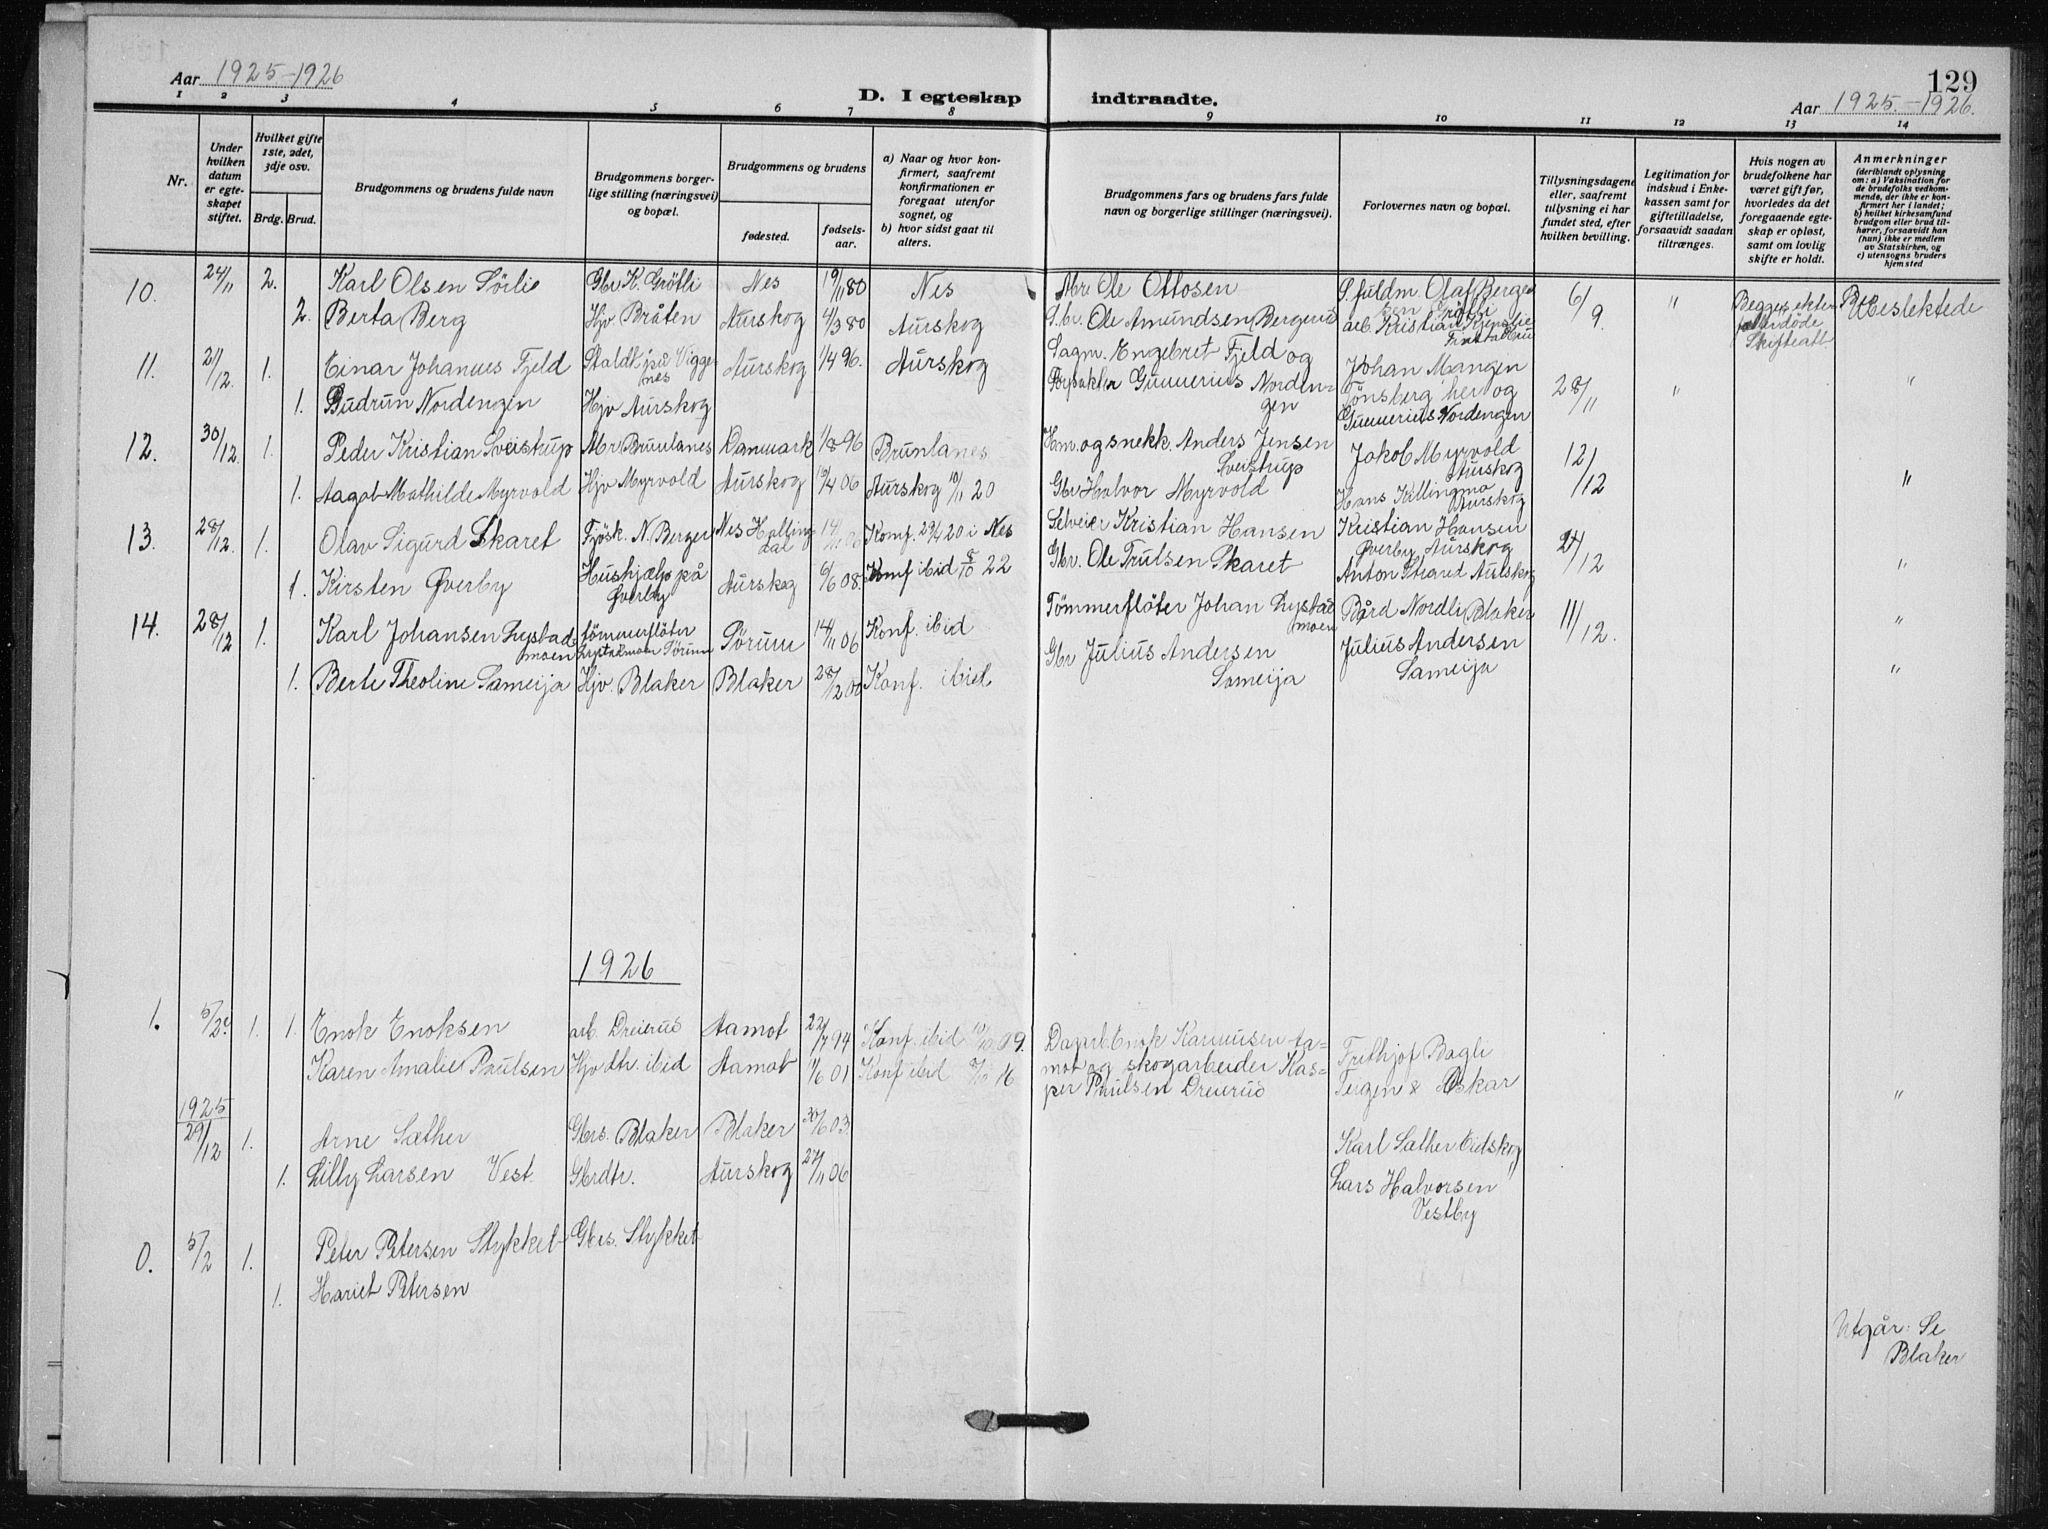 Aar 1925-1926
D. I egteskap indtraadte.
129
Aar 1925.-1926.
1 2 3 4 5 6 7 8 9 10 11 12 13 14
Nr.
Under hvilken datum er egteskapet stiftet.
Hvilket gifte 1ste, 2det, 3dje osv.
Brdg. Brud.
Brudgommens og brudens fulde navn
Brudgommens borgerlige stilling (næringsvei) og bopæl.
Brudgommens og brudens
fødested.
fødselsaar.
a) Naar og hvor konfirmert, saafremt konfirmationen er foregaat utenfor sognet, og
b) hvor sidst gaat til alters.
Brudgommens fars og brudens fars fulde navn og borgerlige stillinger (næringsvei).
Forlovernes navn og bopæl.
Tillysningsdagene eller, saafremt tillysning ei har fundet sted, efter hvilken bevilling.
Legitimation for indskud i Enkekassen samt for giftetilladelse, forsaavidt saadan tiltrænges.
Hvis nogen av brudefolkene har været gift før, hvorledes da det foregaaende egteskap er opløst, samt om lovlig skifte er holdt.
Anmerkninger
(deriblandt oplysning om: a) Vaksination for de brudefolks vedkommende, der ikke er konfirmert her i landet;
b) hvilket kirkesamfund brudgom eller brud tilhører, forsaavidt han (hun) ikke er medlem av Statskirken, og
c) utensogns bruders hjemsted
10. 24/11 2. Karl Olsen Sörlie Gbr K. Grötli Nes 19/11 80 Nes Mbr Ole Ottosen 6/9 "
2. Berta Berg Hjv Bråten Aurskog 4/3 80 Aurskog Gbr. Ole Amundsen Bergerud arb. Kristian
Ubeslektede
11. 21/12. 1. Einar Johannes Fjeld Staldk. på Viggenes Aurskog 1/4 96. Aurskog Sagm. Engebret Fjeld og Johan Mangen 28/11 " "
1. Gudrun Nordengen Hjv Aurskog Gunnerius Nordengen Tönsberg her og Gunnerius Nordengen
12. 30/12. 1. Peder Kristian Sveistrup Mbr Brunlanes Danmark 1/8 96 Brunlanes Hm. og snekk. Anders Jensen Sveistrup Jakob Myrvold Aurskog 12/12 "
1. Aagot Mathilde Myrvold Hjv Myrvold Aurskog 19/4 06 Aurskog 10/11 20 Gbr Halvor Myrvold Hans Killingmo Aurskog
13. 28/12. 1. Olav Sigurd Skaret Fjösk. N. Berger Nes Hallingdal Konf. 29/4 20 i Nes Selveier Kristian Hansen Kristian Hansen Øverby Aurskog 24/12 "
1. Kirsten Øverby Hushjælp på Øverby Aurskog 6/6 08. Konf ibid 8/10 22 Gbr. Ole Trulsen Skaret Anton Strand Aurskog
14. 28/12 1. Karl Johansen Lystadmoen tömmerflöter Lystadmoen Sörum Sörum 14/11 06 Konf. ibid Tömmerflöter Johan Lystadmoen Bård Nordli Blaker 11/12. "
1. Berte Theoline Sameija Hjv. Blaker Blaker 28/2 00 Konf. ibid Gbr Julius Andersen Sameija Julius Andersen Sameija "
1926
1. 5/2 1. 1. Enok Enoksen arb. Dreierud Aamot 22/7 94 Konf. ibid 10/10 09. Dagarb. Enok Karinusen Aamot og skogarbeider Kasper Paulsen Dreierud Frithjof Bagli
Karen Amalie Paulsen Hjv dtr. ibid Aamot 1/6 01 Konf ibid 16 Tergen & Oskar "
1925 29/12 1. Arne Sæther Gbrs. Blaker Blaker 30/6 03. Karl Sæther Eidskog
1. Lilly Larsen Vest Gbrdtr. Aurskog 27/11 06 Lars Halvorsen Vestby
0. 5/2 1. Peter Petersen Stykket Gbrs. Stykket
1. Hariet Petersen
Utgår: Se
Blaker